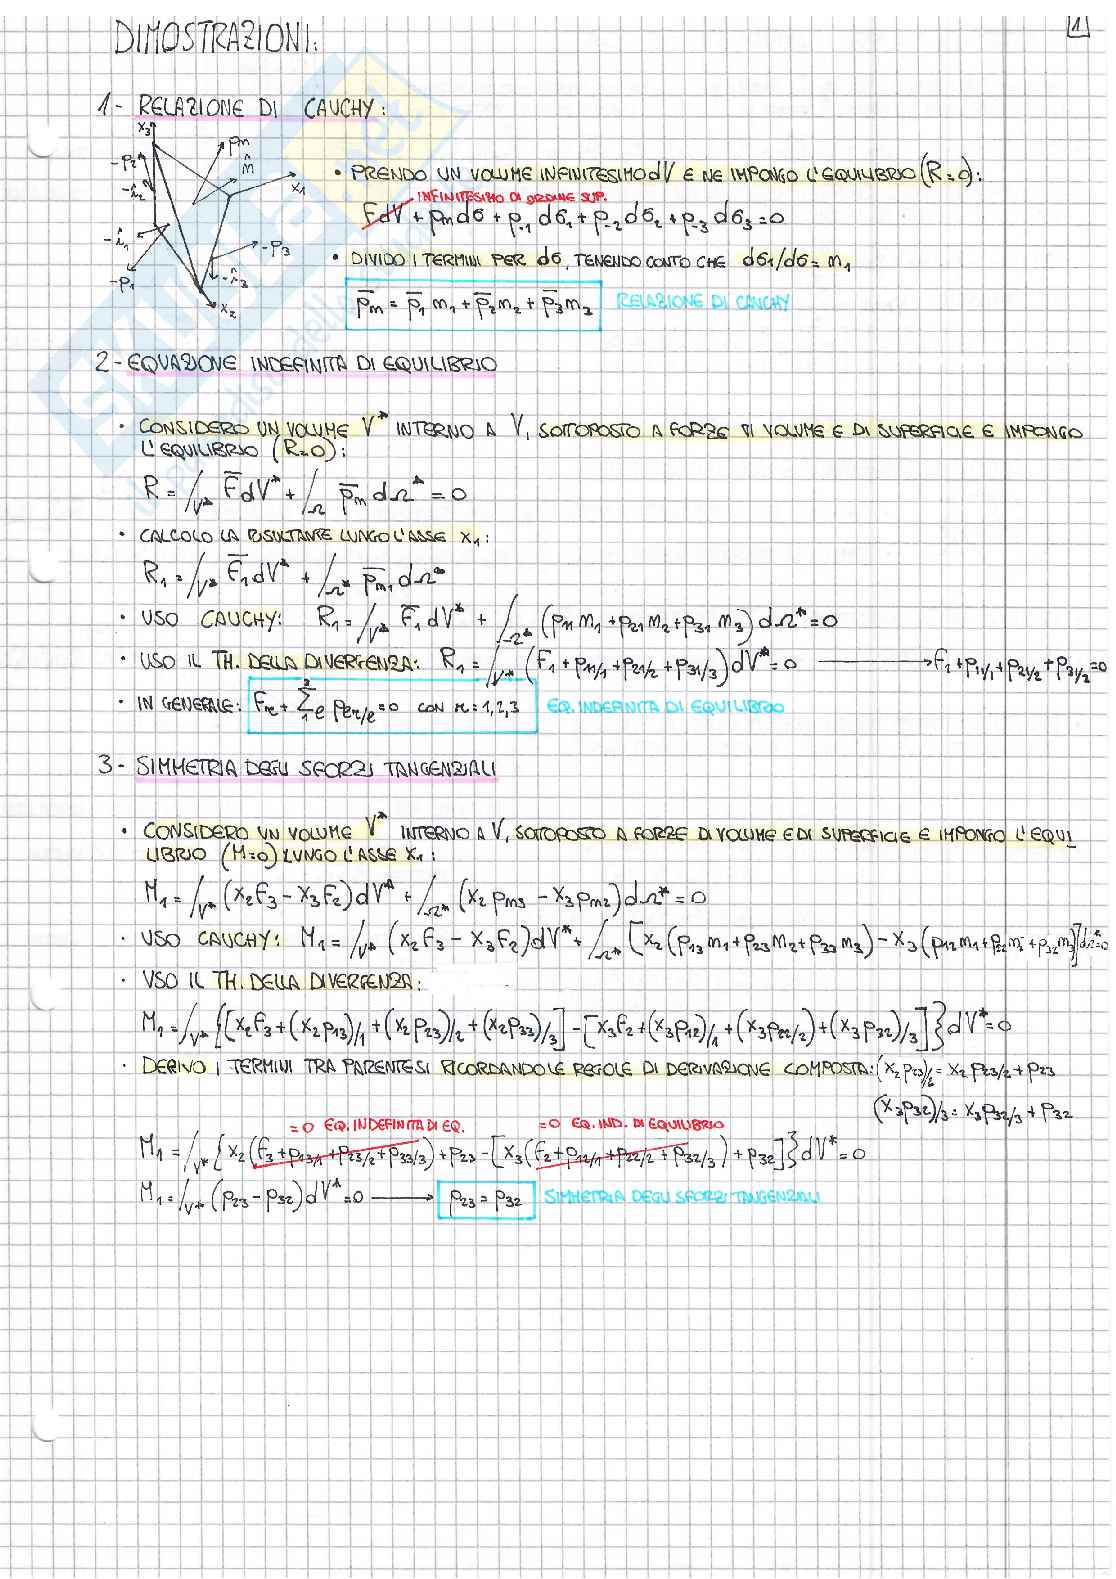 1
DIMOSTRAZIONI:
1- RELAZIONE DI CAUCHY:
x3
-p2
-i2
pn
n
x1
-i1
-p1
-p3
-i3
x2
• PRENDO UN VOLUME INFINITESIMO dV E NE IMPONGO L'EQUILIBRIO (R=0):
INFINITESIMO DI ORDINE SUP.
FdV + pn dσ + p-1 dσ1 + p-2 dσ2 + p-3 dσ3 = 0
• DIVIDO I TERMINI PER dσ, TENENDO CONTO CHE dσ1/dσ = n1
p̄n = p̄1 n1 + p̄2 n2 + p̄3 n3 RELAZIONE DI CAUCHY
2- EQUAZIONE INDEFINITA DI EQUILIBRIO
• CONSIDERO UN VOLUME V* INTERNO A V, SOTTOPOSTO A FORZE DI VOLUME E DI SUPERFICIE E IMPONGO
L'EQUILIBRIO (R=0):
R = ∫V* F̄ dV* + ∫Ω p̄n dΩ* = 0
• CALCOLO LA RISULTANTE LUNGO L'ASSE x1:
R1 = ∫V* F̄1 dV* + ∫Ω* p̄n1 dΩ*
• USO CAUCHY: R1 = ∫V* F̄1 dV* + ∫Ω* (p11 n1 + p21 n2 + p31 n3) dΩ* = 0
• USO IL TH. DELLA DIVERGENZA: R1 = ∫V* (F1 + p11/1 + p21/2 + p31/3) dV* = 0 → F1 + p11/1 + p21/2 + p31/3 = 0
• IN GENERALE: Fr + Σ³₁ℓ pℓr/ℓ = 0 CON r = 1,2,3 EQ. INDEFINITA DI EQUILIBRIO
3- SIMMETRIA DEGLI SFORZI TANGENZIALI
• CONSIDERO UN VOLUME V* INTERNO A V, SOTTOPOSTO A FORZE DI VOLUME E DI SUPERFICIE E IMPONGO L'EQUI_
LIBRIO (M=0) LUNGO L'ASSE x1:
M1 = ∫V* (x2F3 - x3F2) dV* + ∫Ω* (x2 pn3 - x3 pn2) dΩ* = 0
• USO CAUCHY: M1 = ∫V* (x2F3 - x3F2) dV* + ∫Ω* [x2 (p13 n1 + p23 n2 + p33 n3) - x3 (p12 n1 + p22 n2 + p32 n3)] dΩ* = 0
• USO IL TH. DELLA DIVERGENZA:
M1 = ∫V* {[x2F3 + (x2p13)/1 + (x2p23)/2 + (x2p33)/3] - [x3F2 + (x3p12)/1 + (x3p22/2) + (x3p32)/3]} dV* = 0
• DERIVO I TERMINI TRA PARENTESI RICORDANDO LE REGOLE DI DERIVAZIONE COMPOSTA: (x2p23)/2 = x2p23/2 + p23
(x3p32)/3 = x3p32/3 + p32
=0 EQ. INDEFINITA DI EQ. =0 EQ. IND. DI EQUILIBRIO
M1 = ∫V* {x2 (F3 + p13/1 + p23/2 + p33/3) + p23 - [x3 (F2 + p12/1 + p22/2 + p32/3) + p32]} dV* = 0
M1 = ∫V* (p23 - p32) dV* = 0 → p23 = p32 SIMMETRIA DEGLI SFORZI TANGENZIALI